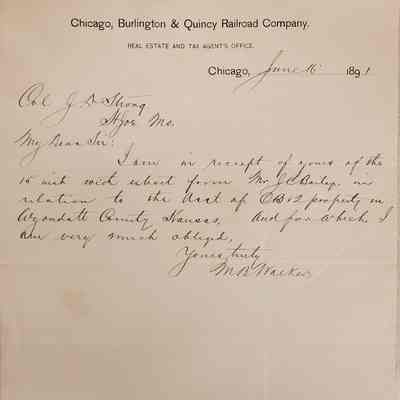 Chicago, Burlington & Quincy Railroad Company.
REAL ESTATE AND TAX AGENT'S OFFICE.
Chicago, June 16 1891
Col J D Strong
St Joe Mo.
My Dear Sir:
I am in receipt of yours of the
15 inst with from Mr. J.C. in
relation to the of CB & Q property in
Wyandott County Kansas, and for which I
am very much obliged,
Yours truly